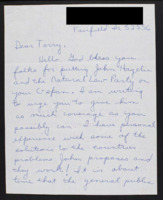 Fairfield Ia 52556
Dear Terry,
Hello. God bless you
folks for putting John Hagelin
and the Natural Law Party on
your C-Span. I am writing
to urge you to give him
as much coverage as you
possibly can. I have personal
experience with some of the
solutions to the countries
problems John proposes and
they work! It is about
time that the general public